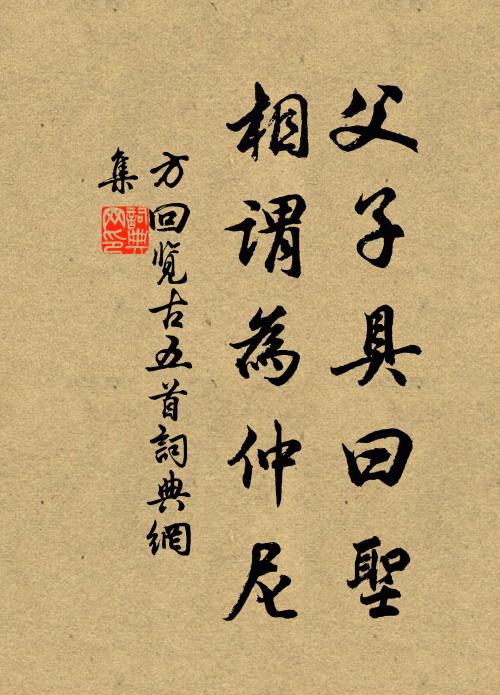 父子具曰聖
相謂為仲尼
方回览古五首詞典網
集
詞典
网印